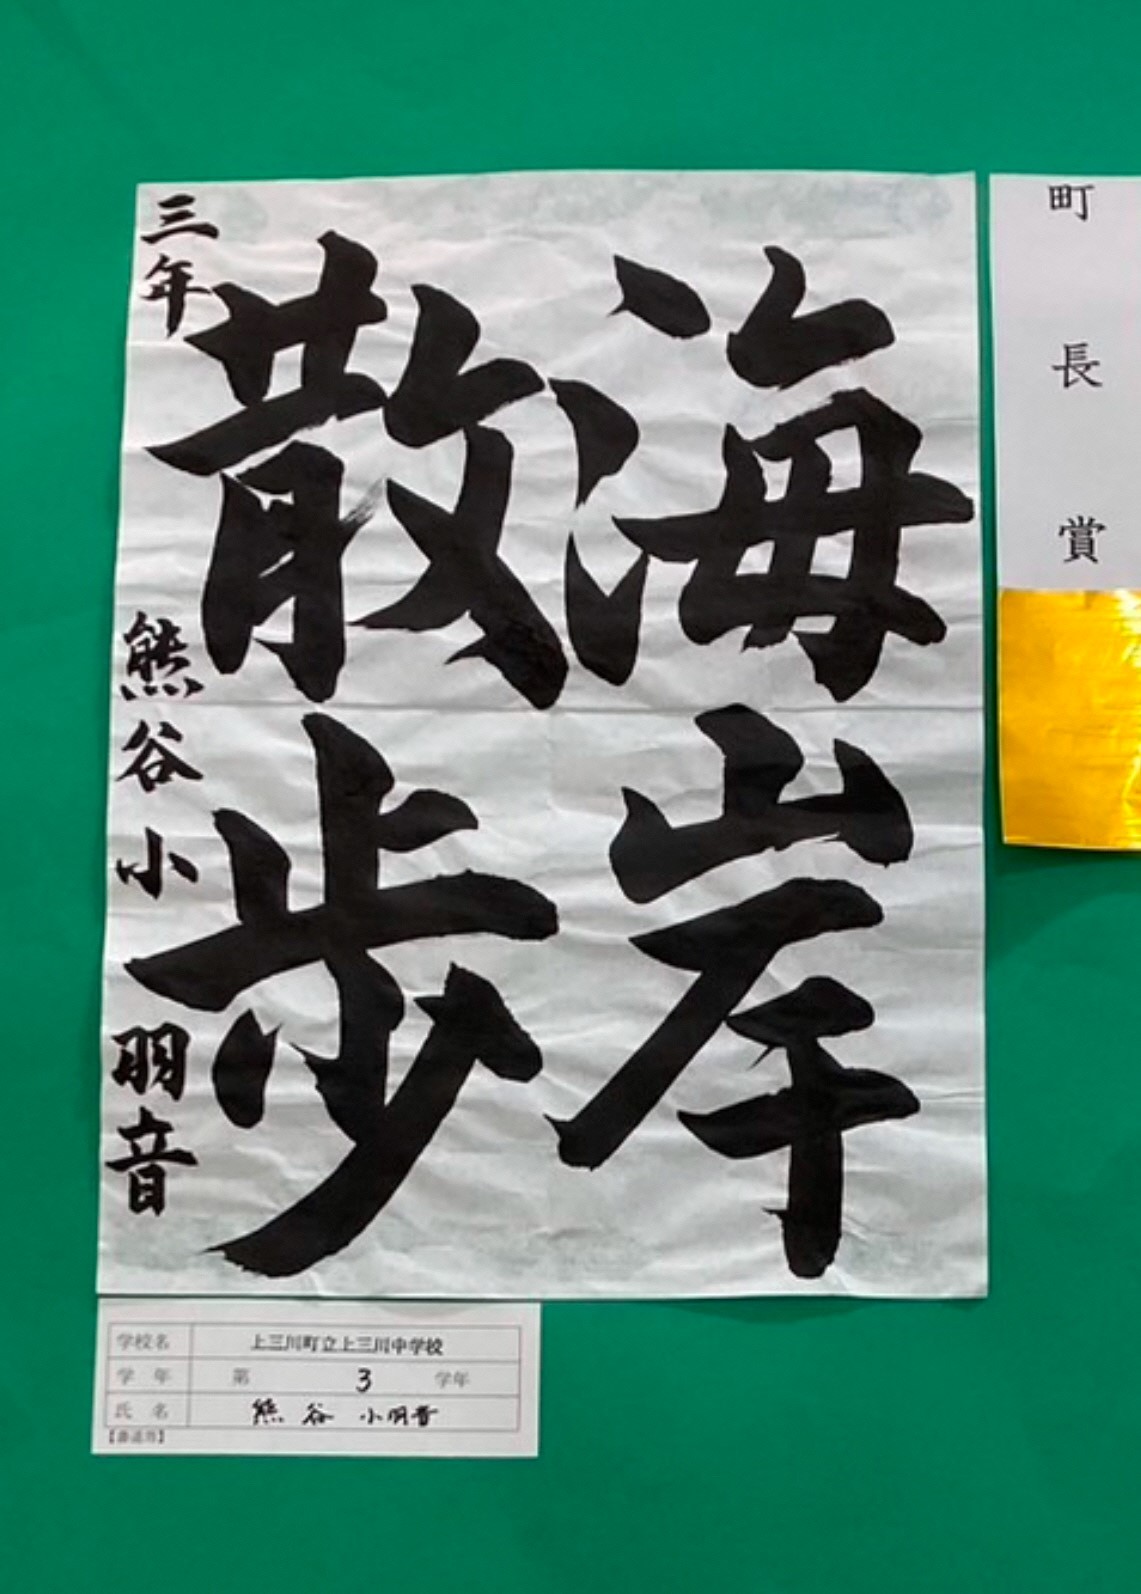 町長賞
海岸
散歩
三年 熊谷小羽音
学校名 上三川町立上三川中学校
学年 第 3 学年
氏名 熊谷 小羽音
【書道用】